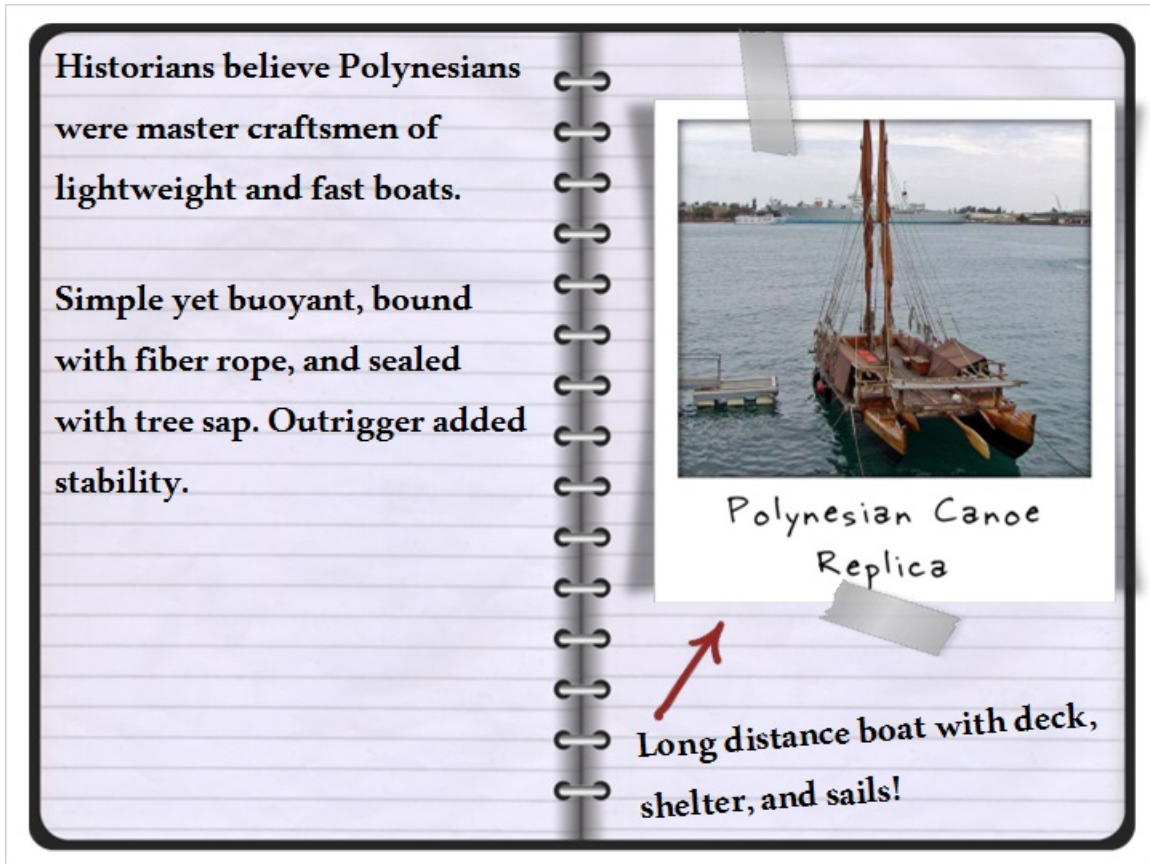 Historians believe Polynesians
were master craftsmen of
lightweight and fast boats.
Simple yet buoyant, bound
with fiber rope, and sealed
with tree sap. Outrigger added
stability.
Polynesian Canoe
Replica
Long distance boat with deck,
shelter, and sails!